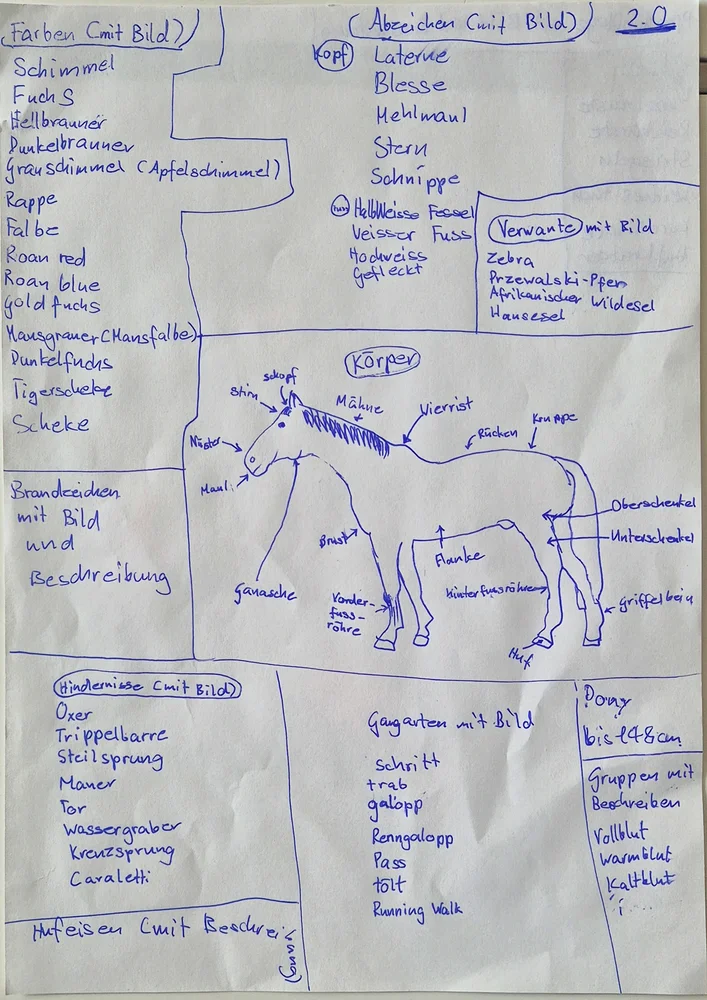 Farben (mit Bild)
Schimmel
Fuchs
Hellbrauner
Dunkelbrauner
Grauschimmel (Apfelschimmel)
Rappe
Falbe
Roan red
Roan blue
Goldfuchs
Mausgrauer (Mausfalbe)
Dunkelfuchs
Tigerscheke
Scheke
(Abzeichen (mit Bild)
2.0
Kopf
Laterne
Blesse
Mehlmaul
Stern
Schnippe
Fuss
Halbweisse Fessel
Veisser Fuss
Hochweiss
Gefleckt
Verwante mit Bild
Zebra
Przewalski-Pfer
Afrikanischer Wildesel
Hausesel
Körper
Schopf
Stirn
Mähne
Vierrist
Rücken
Kruppe
Nüster
Maul
Ganasche
Brust
Vorder-
fuss-
röhre
Flanke
Hinterfussröhre
Huf
Oberschenkel
Unterschenkel
Griffelbein
Brandzeichen
mit Bild
und
Beschreibung
Hindernisse (mit Bild)
Oxer
Trippelbarre
Steilsprung
Mauer
Tor
Wassergraber
Kreuzsprung
Cavaletti
Hufeisen (mit Beschreibung)
Gangarten mit Bild
Schritt
trab
galopp
Renngalopp
Pass
tölt
Running Walk
Pony
bis 148cm
Gruppen mit
Beschreiben
Vollblut
Warmblut
Kaltblut